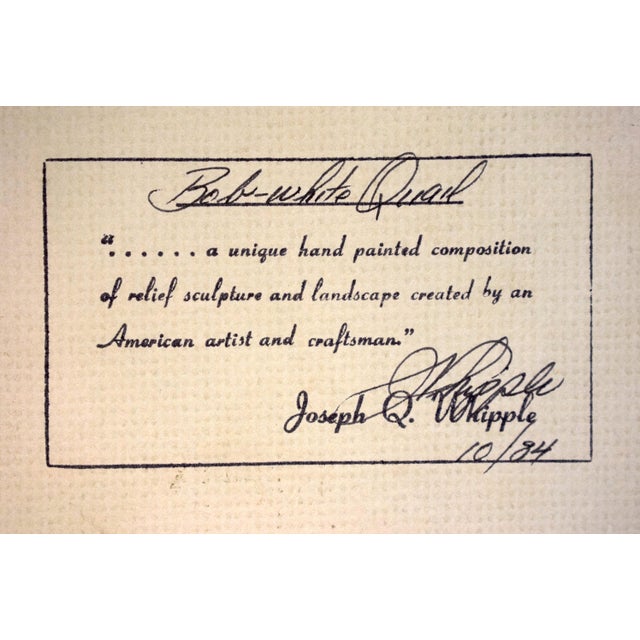 Bob-white Quail
"...... a unique hand painted composition
of relief sculpture and landscape created by an
American artist and craftsman."
JQWhipple
Joseph Q. Whipple
10/84